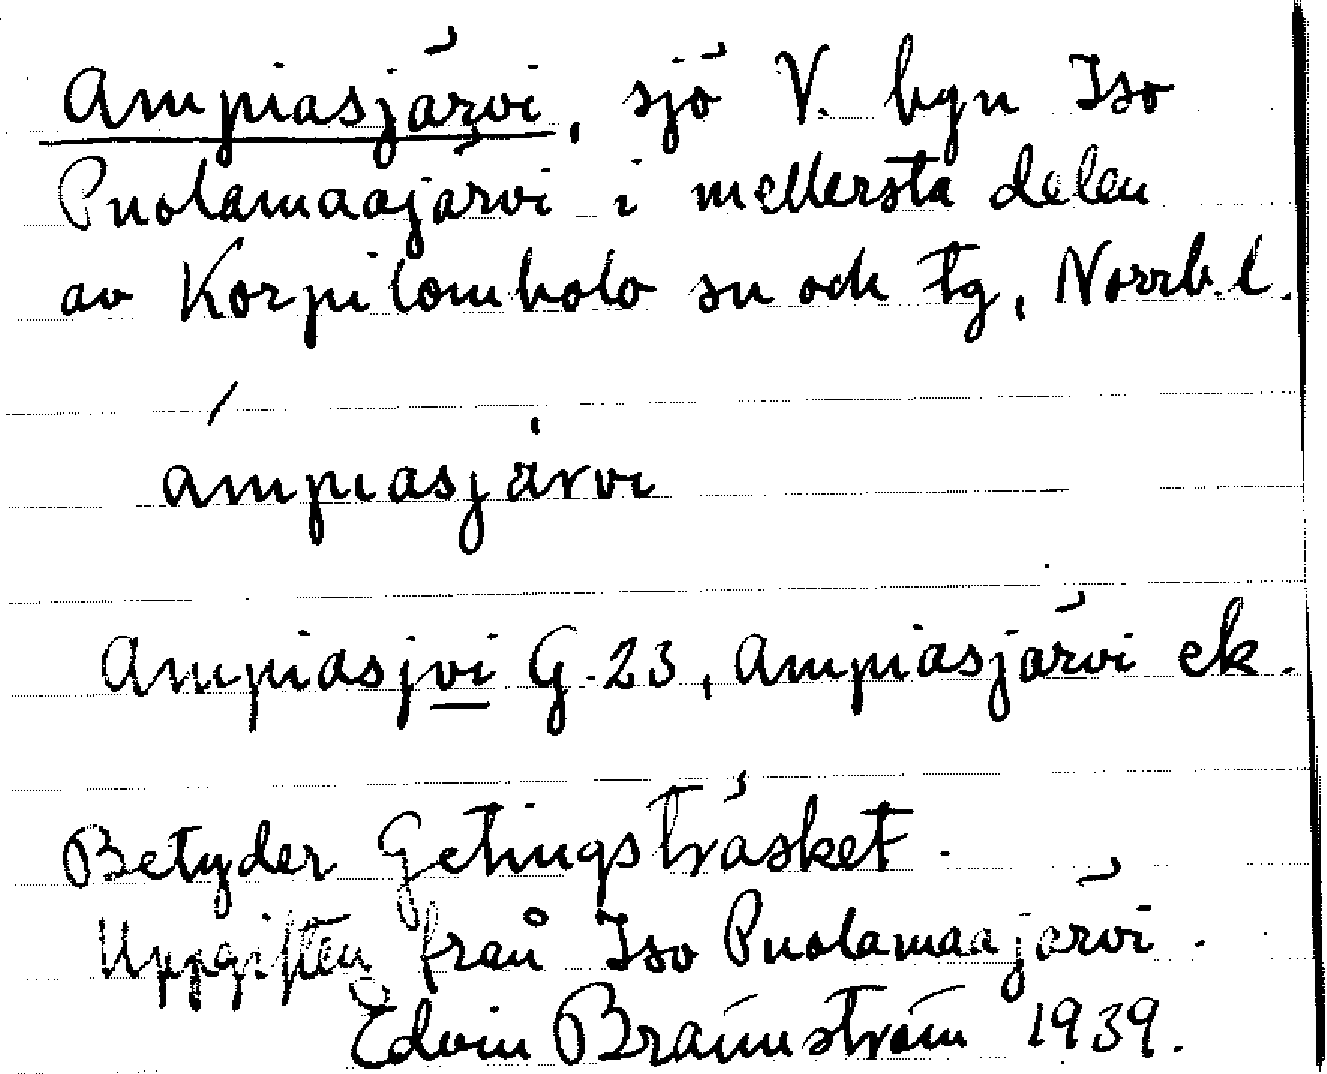 Ampiasjärvi, sjö V. byn Iso
Puolamaajärvi i mellersta delen
av Korpilombolo sn och tg, Norrb.l.
ámpiasjärvi
Ampiasjvi G.23, Ampiasjärvi ek.
Betyder Getingsträsket.
Uppgiften från Iso Puolamaajärvi.
Edvin Brännström 1939.